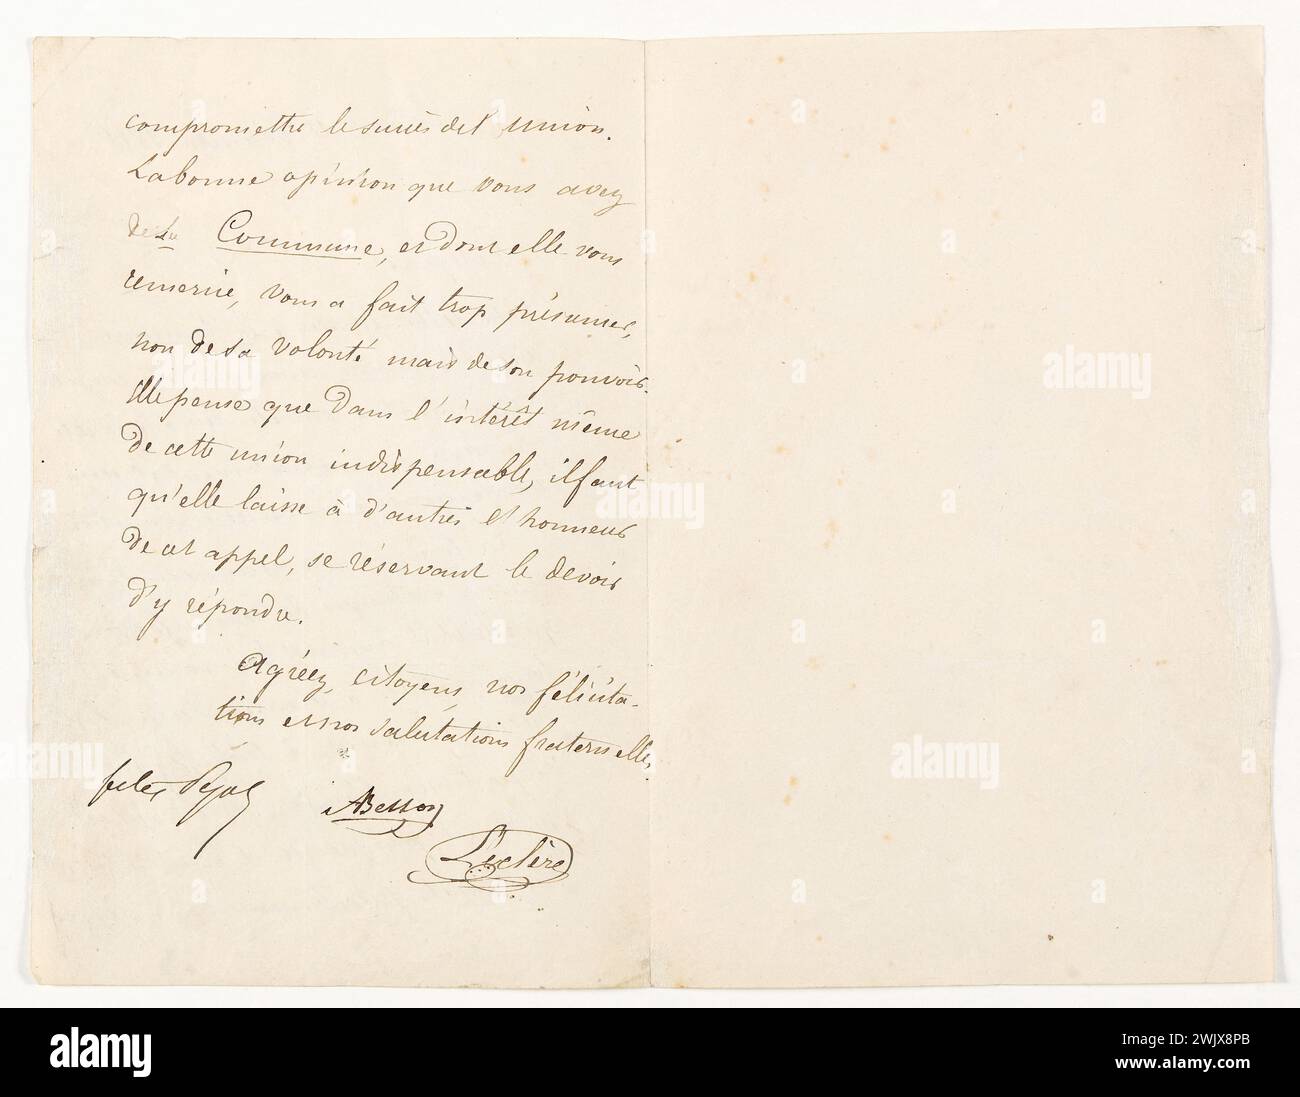 compromettre le succès de l'union.
La bonne opinion que vous avez
de La Commune, et dont elle vous
remercie, vous a fait trop présumer,
non de sa volonté mais de son pouvoir.
Elle pense que dans l'intérêt même
de cette union indispensable, il faut
qu'elle laisse à d'autres l'honneur
de cet appel, se réservant le devoir
d'y répondre.
Agréez, citoyens, nos félicita-
tions et nos salutations fraternelles,
felix Pyat
ABesson
Leclère
alamy
www.alamy.com
Image ID: 2WJX8PB